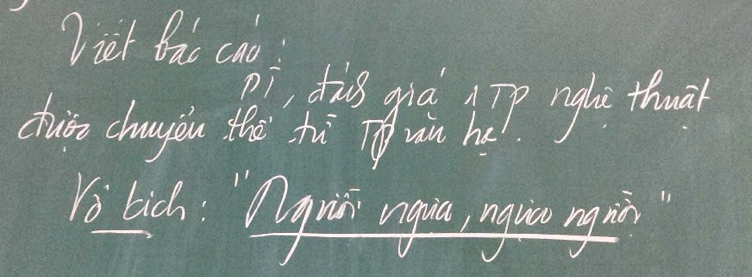 Viết báo cáo:
PT, đánh giá 1 TP nghệ thuật
được chuyển thể từ TP văn học.
Vở kịch: "Người ngựa, ngựa người"